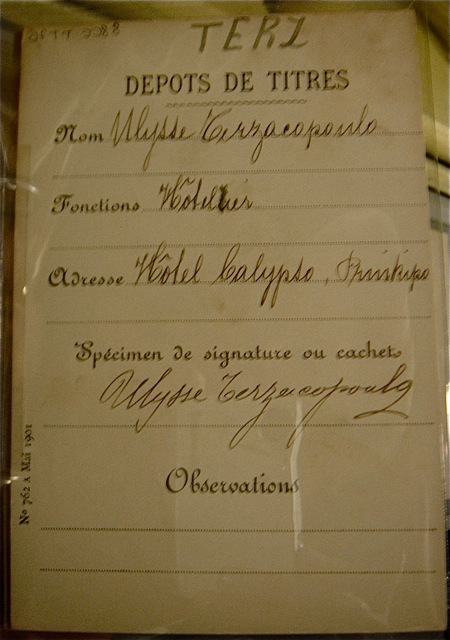 TERZ
DEPOTS DE TITRES
Nom Ulysse Terzacopoulo
Fonctions Hôtelier
Adresse Hôtel Calypso, Prinkipo
Spécimen de signature ou cachet
Ulysse Terzacopoulo
Observations
No 762 x Mai 1901